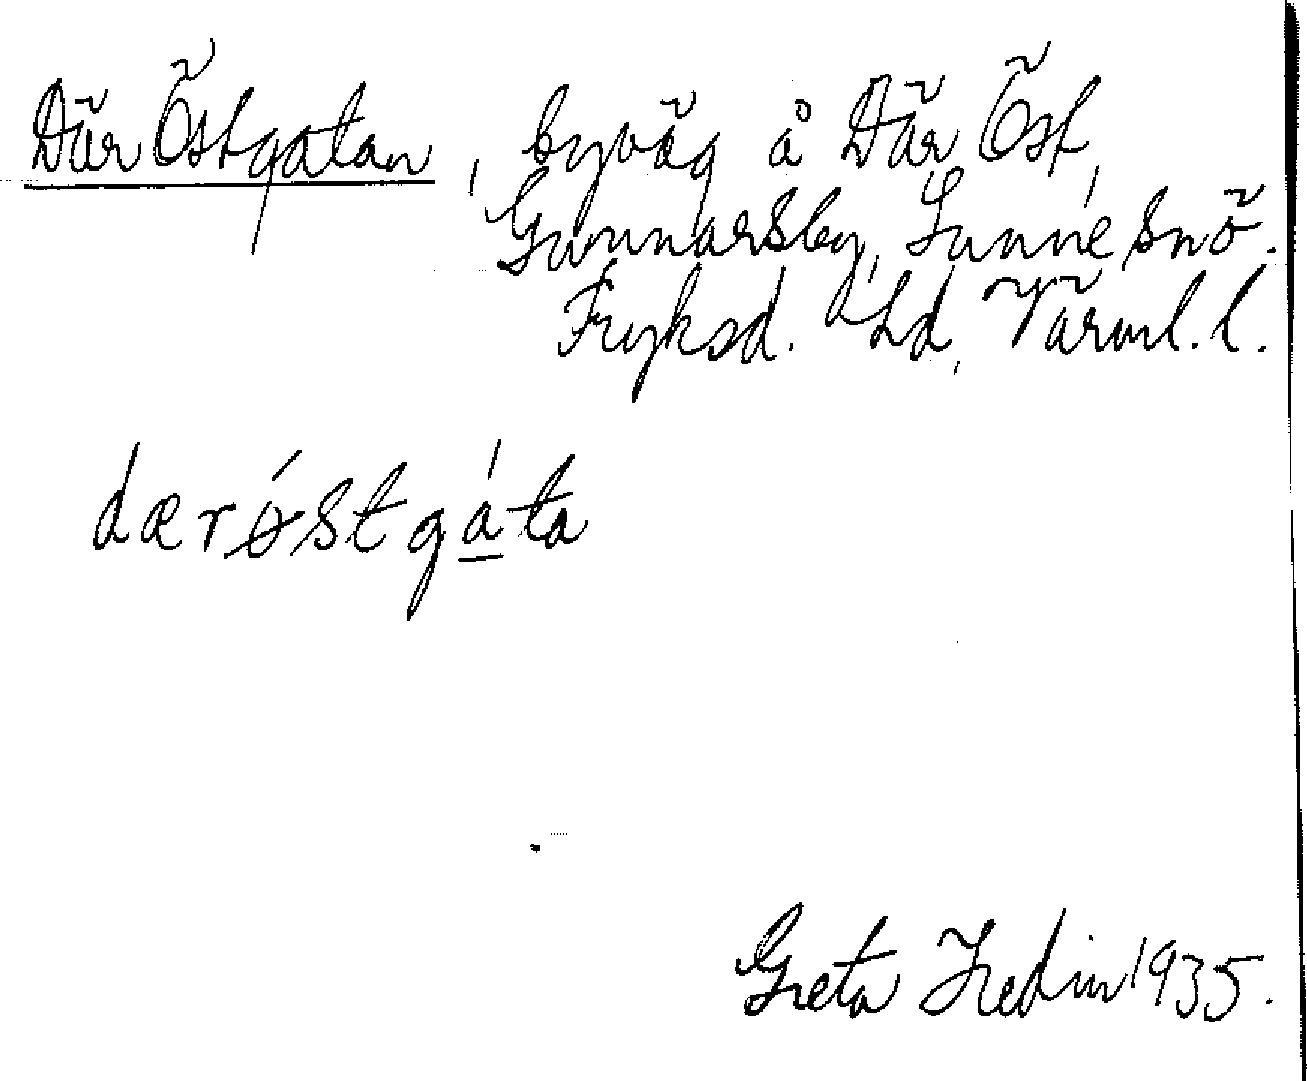 Där Östgatan, byväg å Där Öst,
Gunnarsby, Sunne snö.
Fryksd. hd, Värml. l.
dærǿstgáta
Greta Hedin 1935.